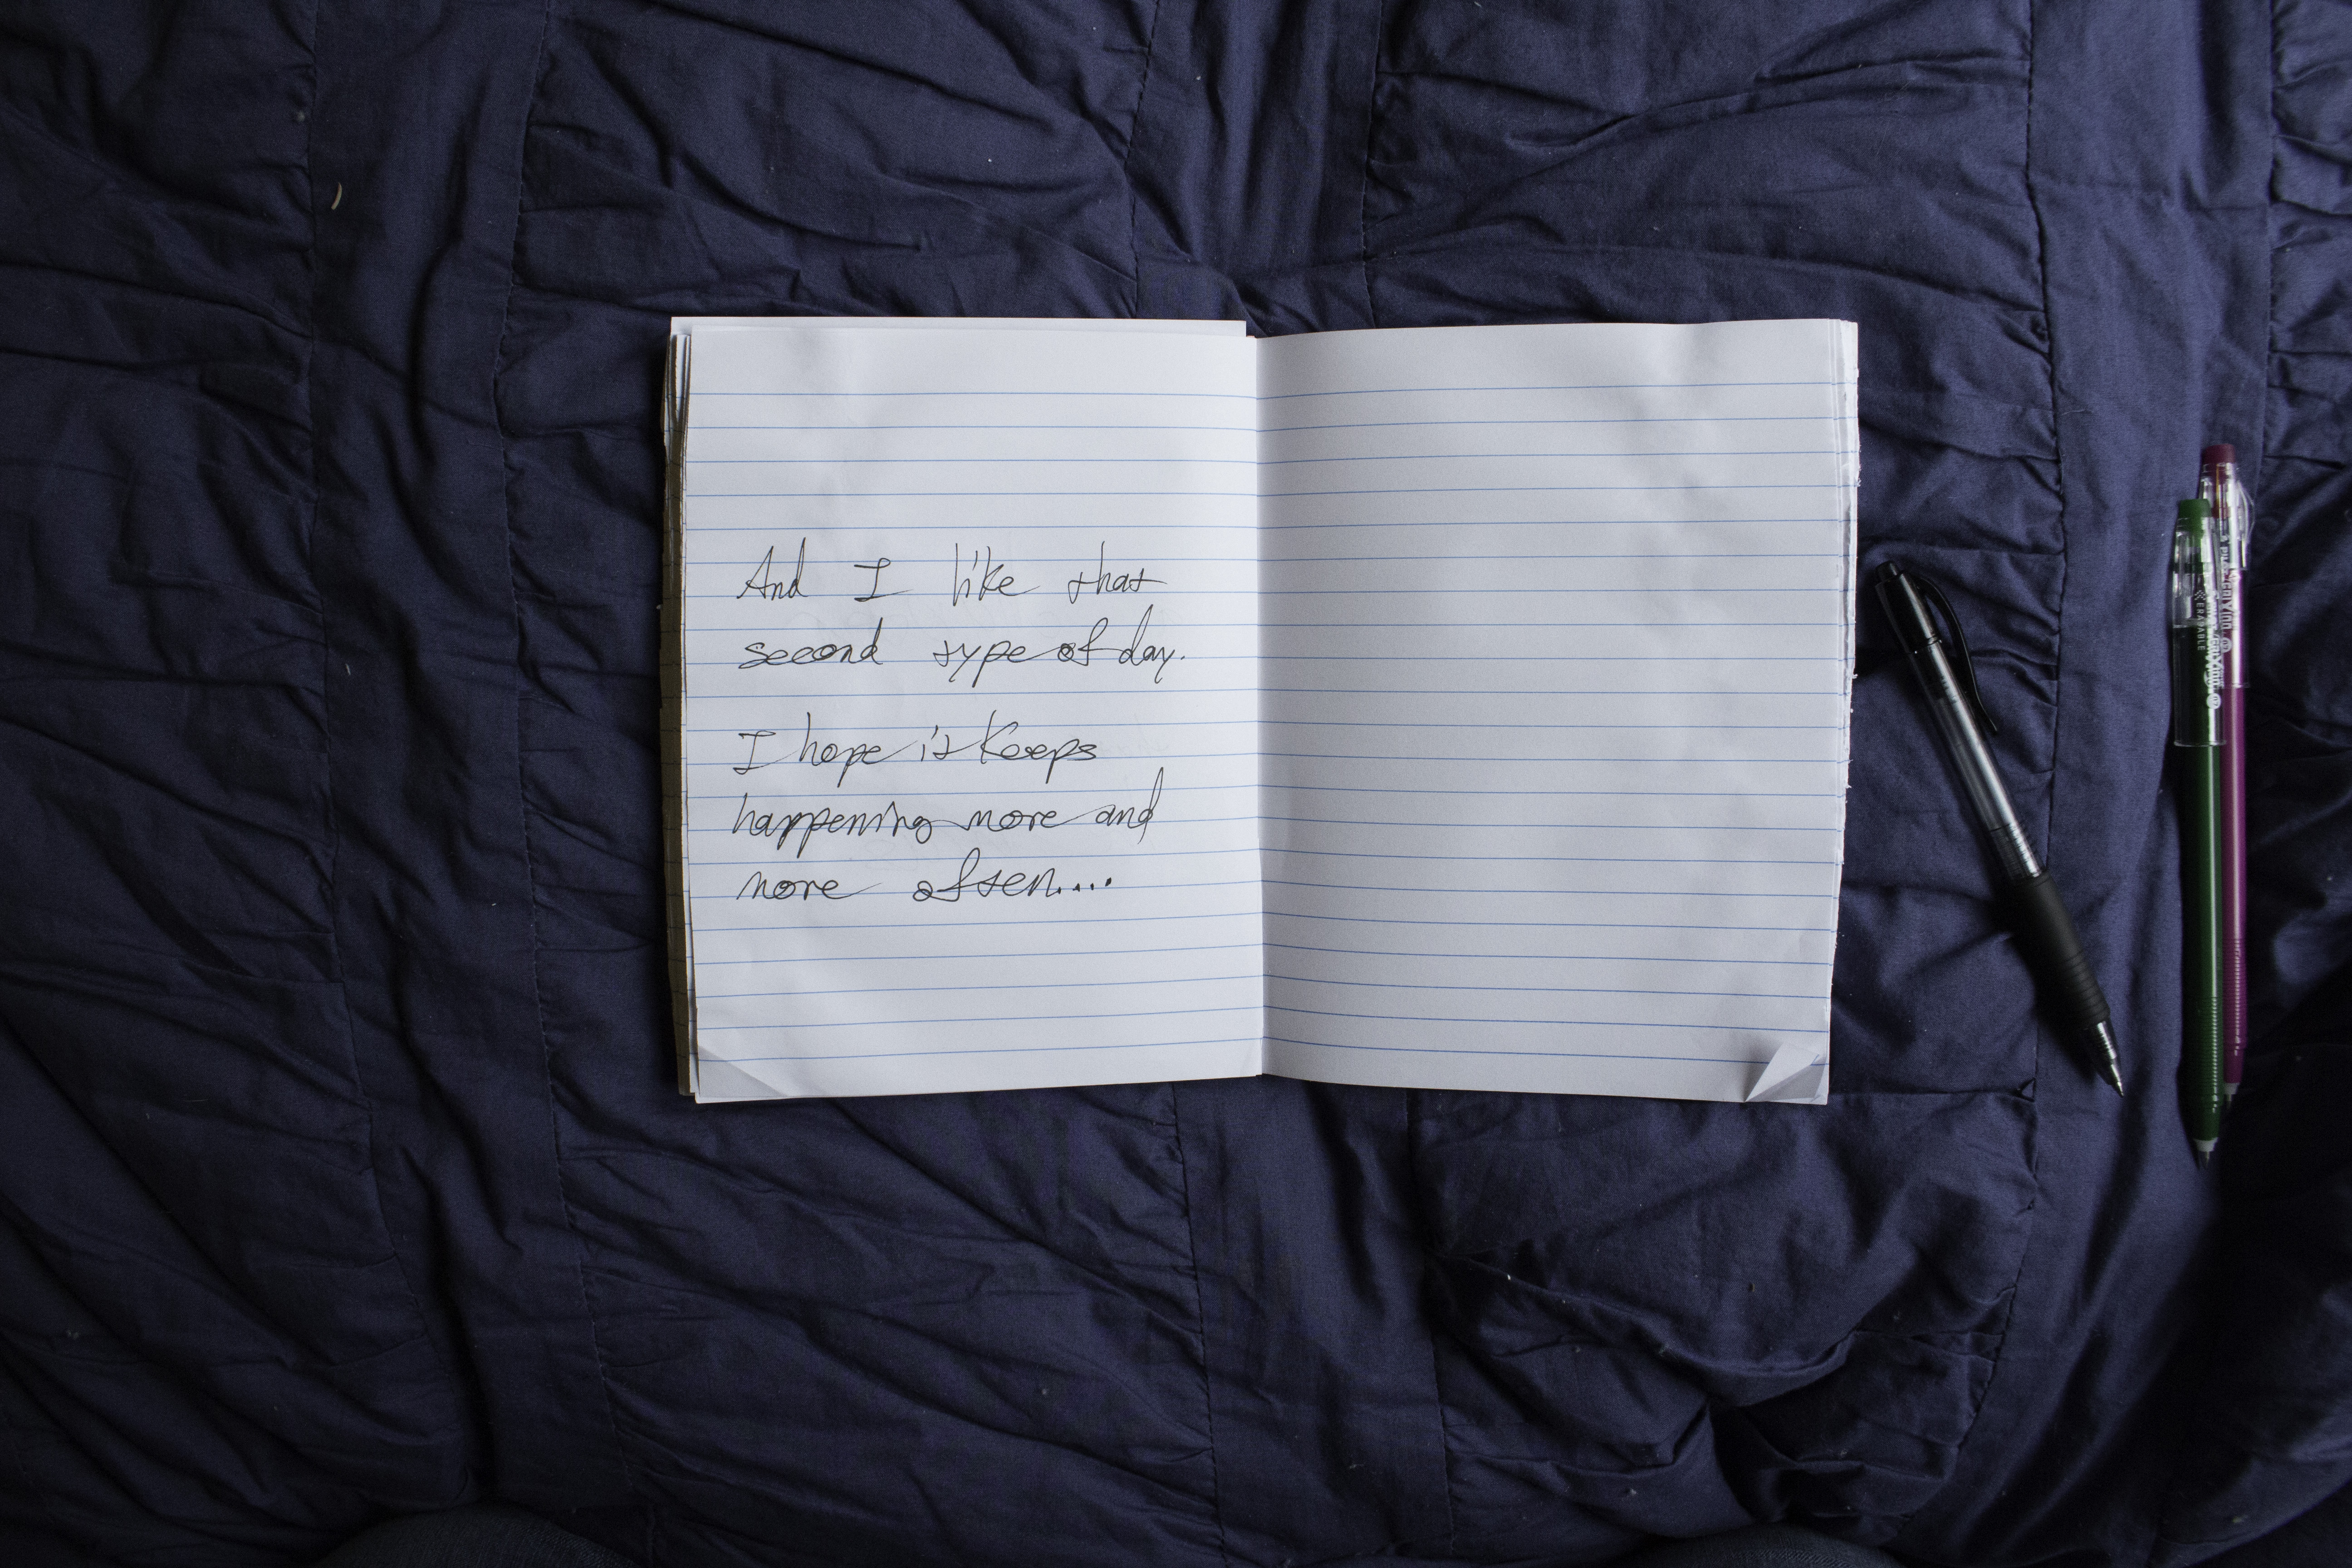 And I like that
second type of day.
I hope it keeps
happening more and
more often....
ERASABLE